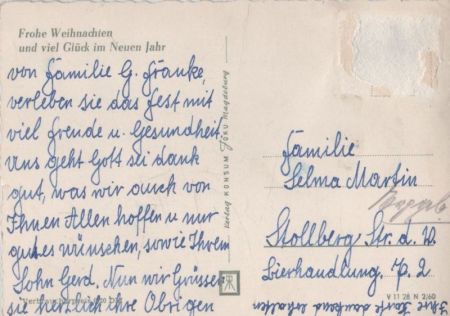 Frohe Weihnachten
und viel Glück im Neuen Jahr
von Familie G. Franke,
verleben sie das Fest mit
viel freude u. Gesundheit
Uns geht Gott sei dank
gut, was wir auch von
Ihnen Allen hoffen u nur
gutes wünschen, sowie Ihrem
Sohn Gerd. Nun wir Grüssen
sie herzlich ihre Obrigen
Verlag KONSUM FOKU Magdeburg
Familie
Selma Martin
Stollberg Str. d.
Bierhandlung, 2
V 11 28 N 2/60
Ihre Karte dankend erhalten